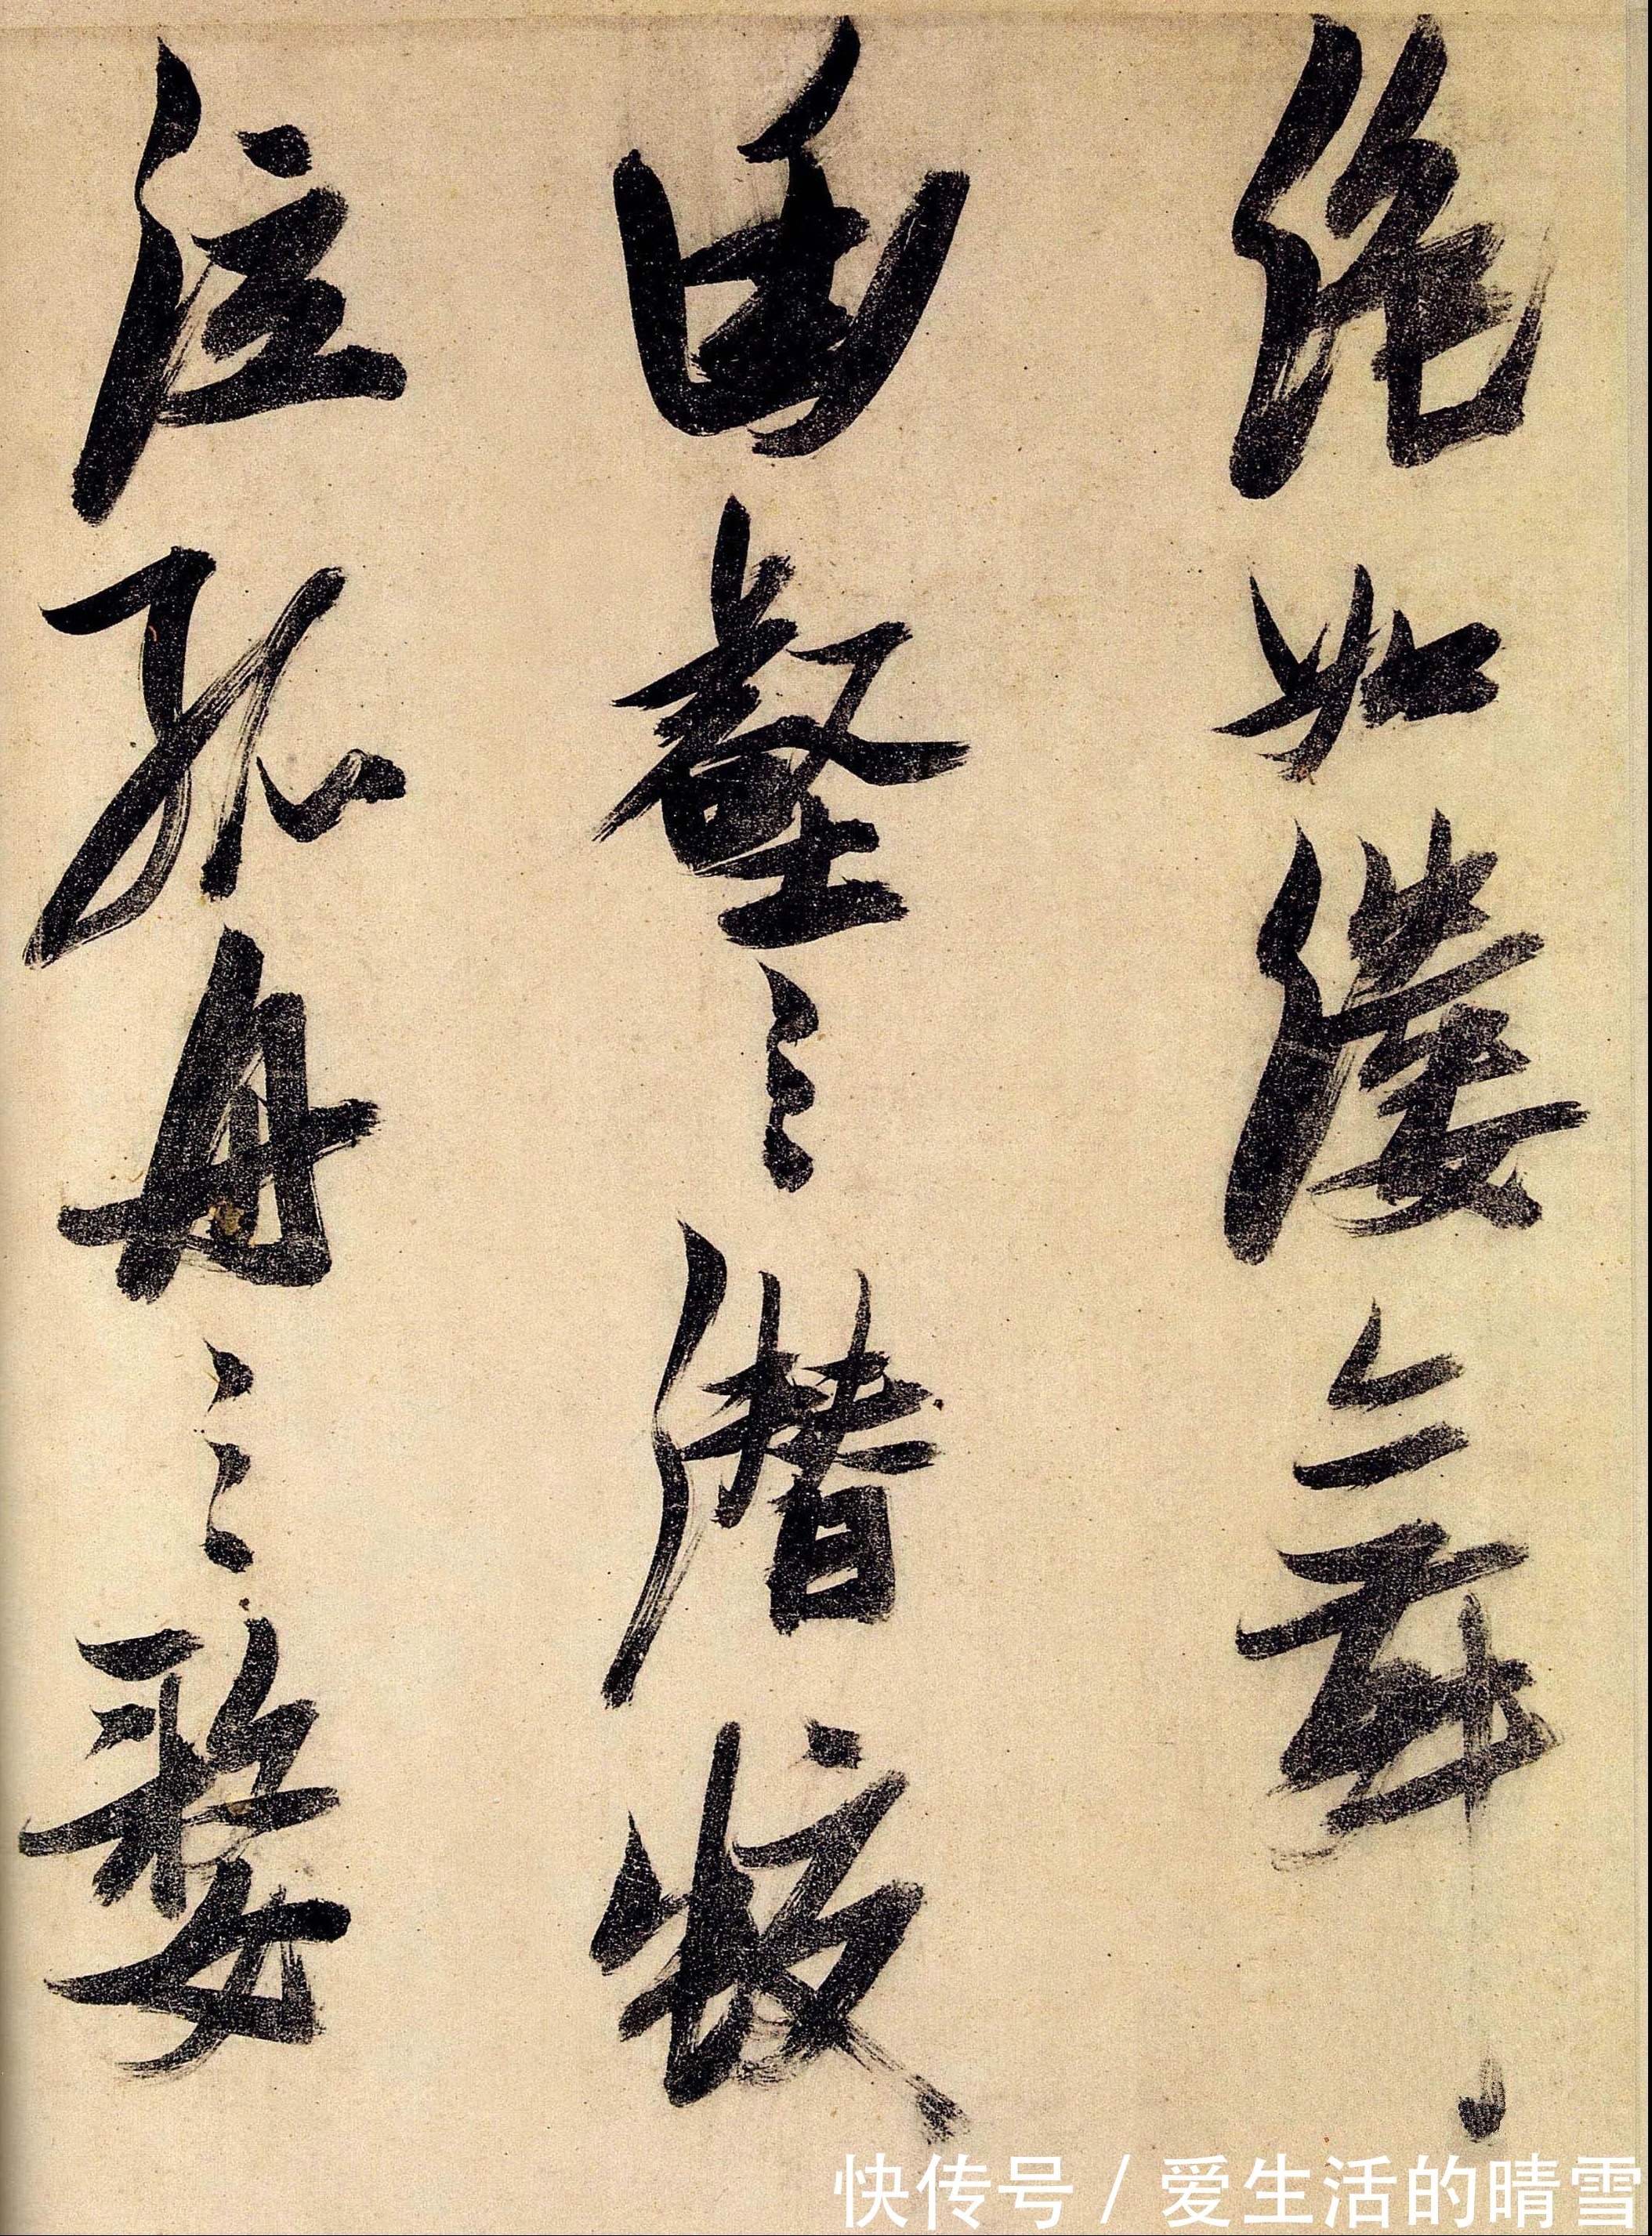 絶如縷舞
幽壑之潜蛟
泣孤舟之嫠
快传号 / 爱生活的晴雪